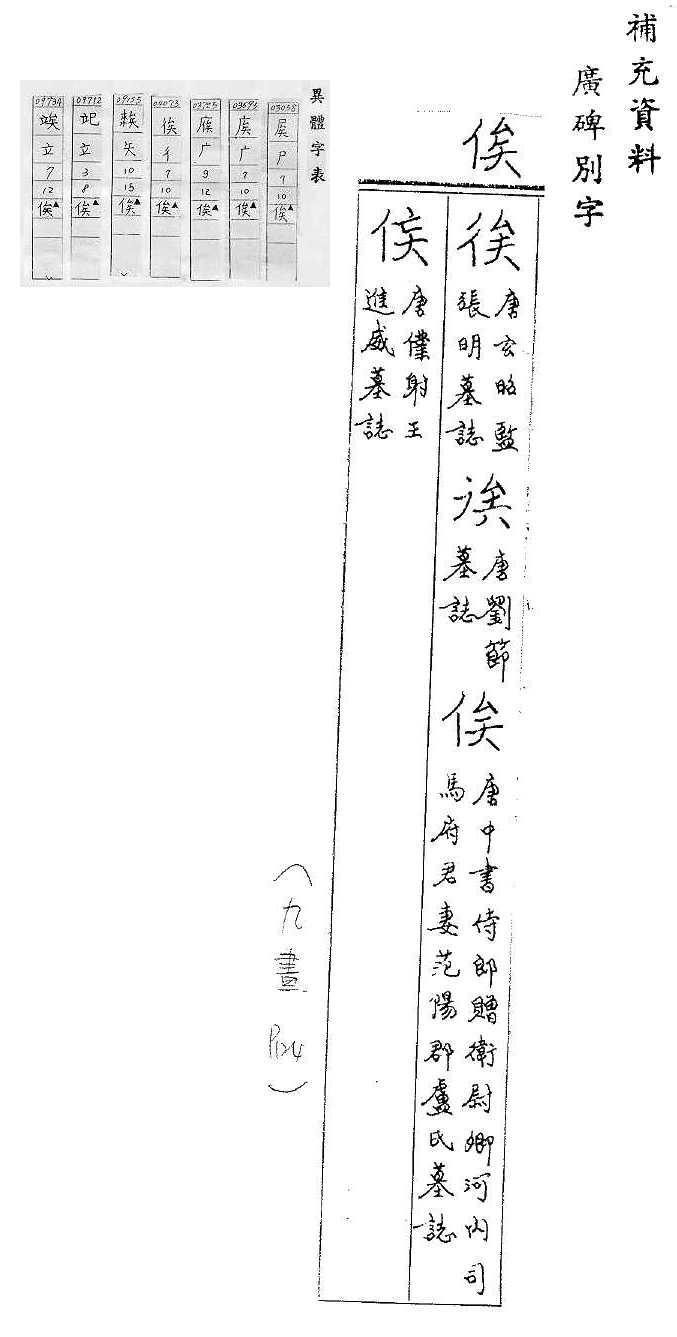 補充資料
廣碑別字
俟
徯 唐玄昭監張明墓誌
唐劉節墓誌
俟 唐中書侍郎贈衛尉卿河內司馬府君妻范陽郡盧氏墓誌
唐僕射王進威墓誌
(九畫 P124)
異體字表
03058 𡱈 尸 7 10 俟▲
03693 庡 广 7 10 俟▲
03725 广 9 12 俟▲
04073 彳 7 10 俟▲
09155 矢 10 15 俟▲
09712 竢 立 3 8 俟▲
09734 竢 立 7 12 俟▲